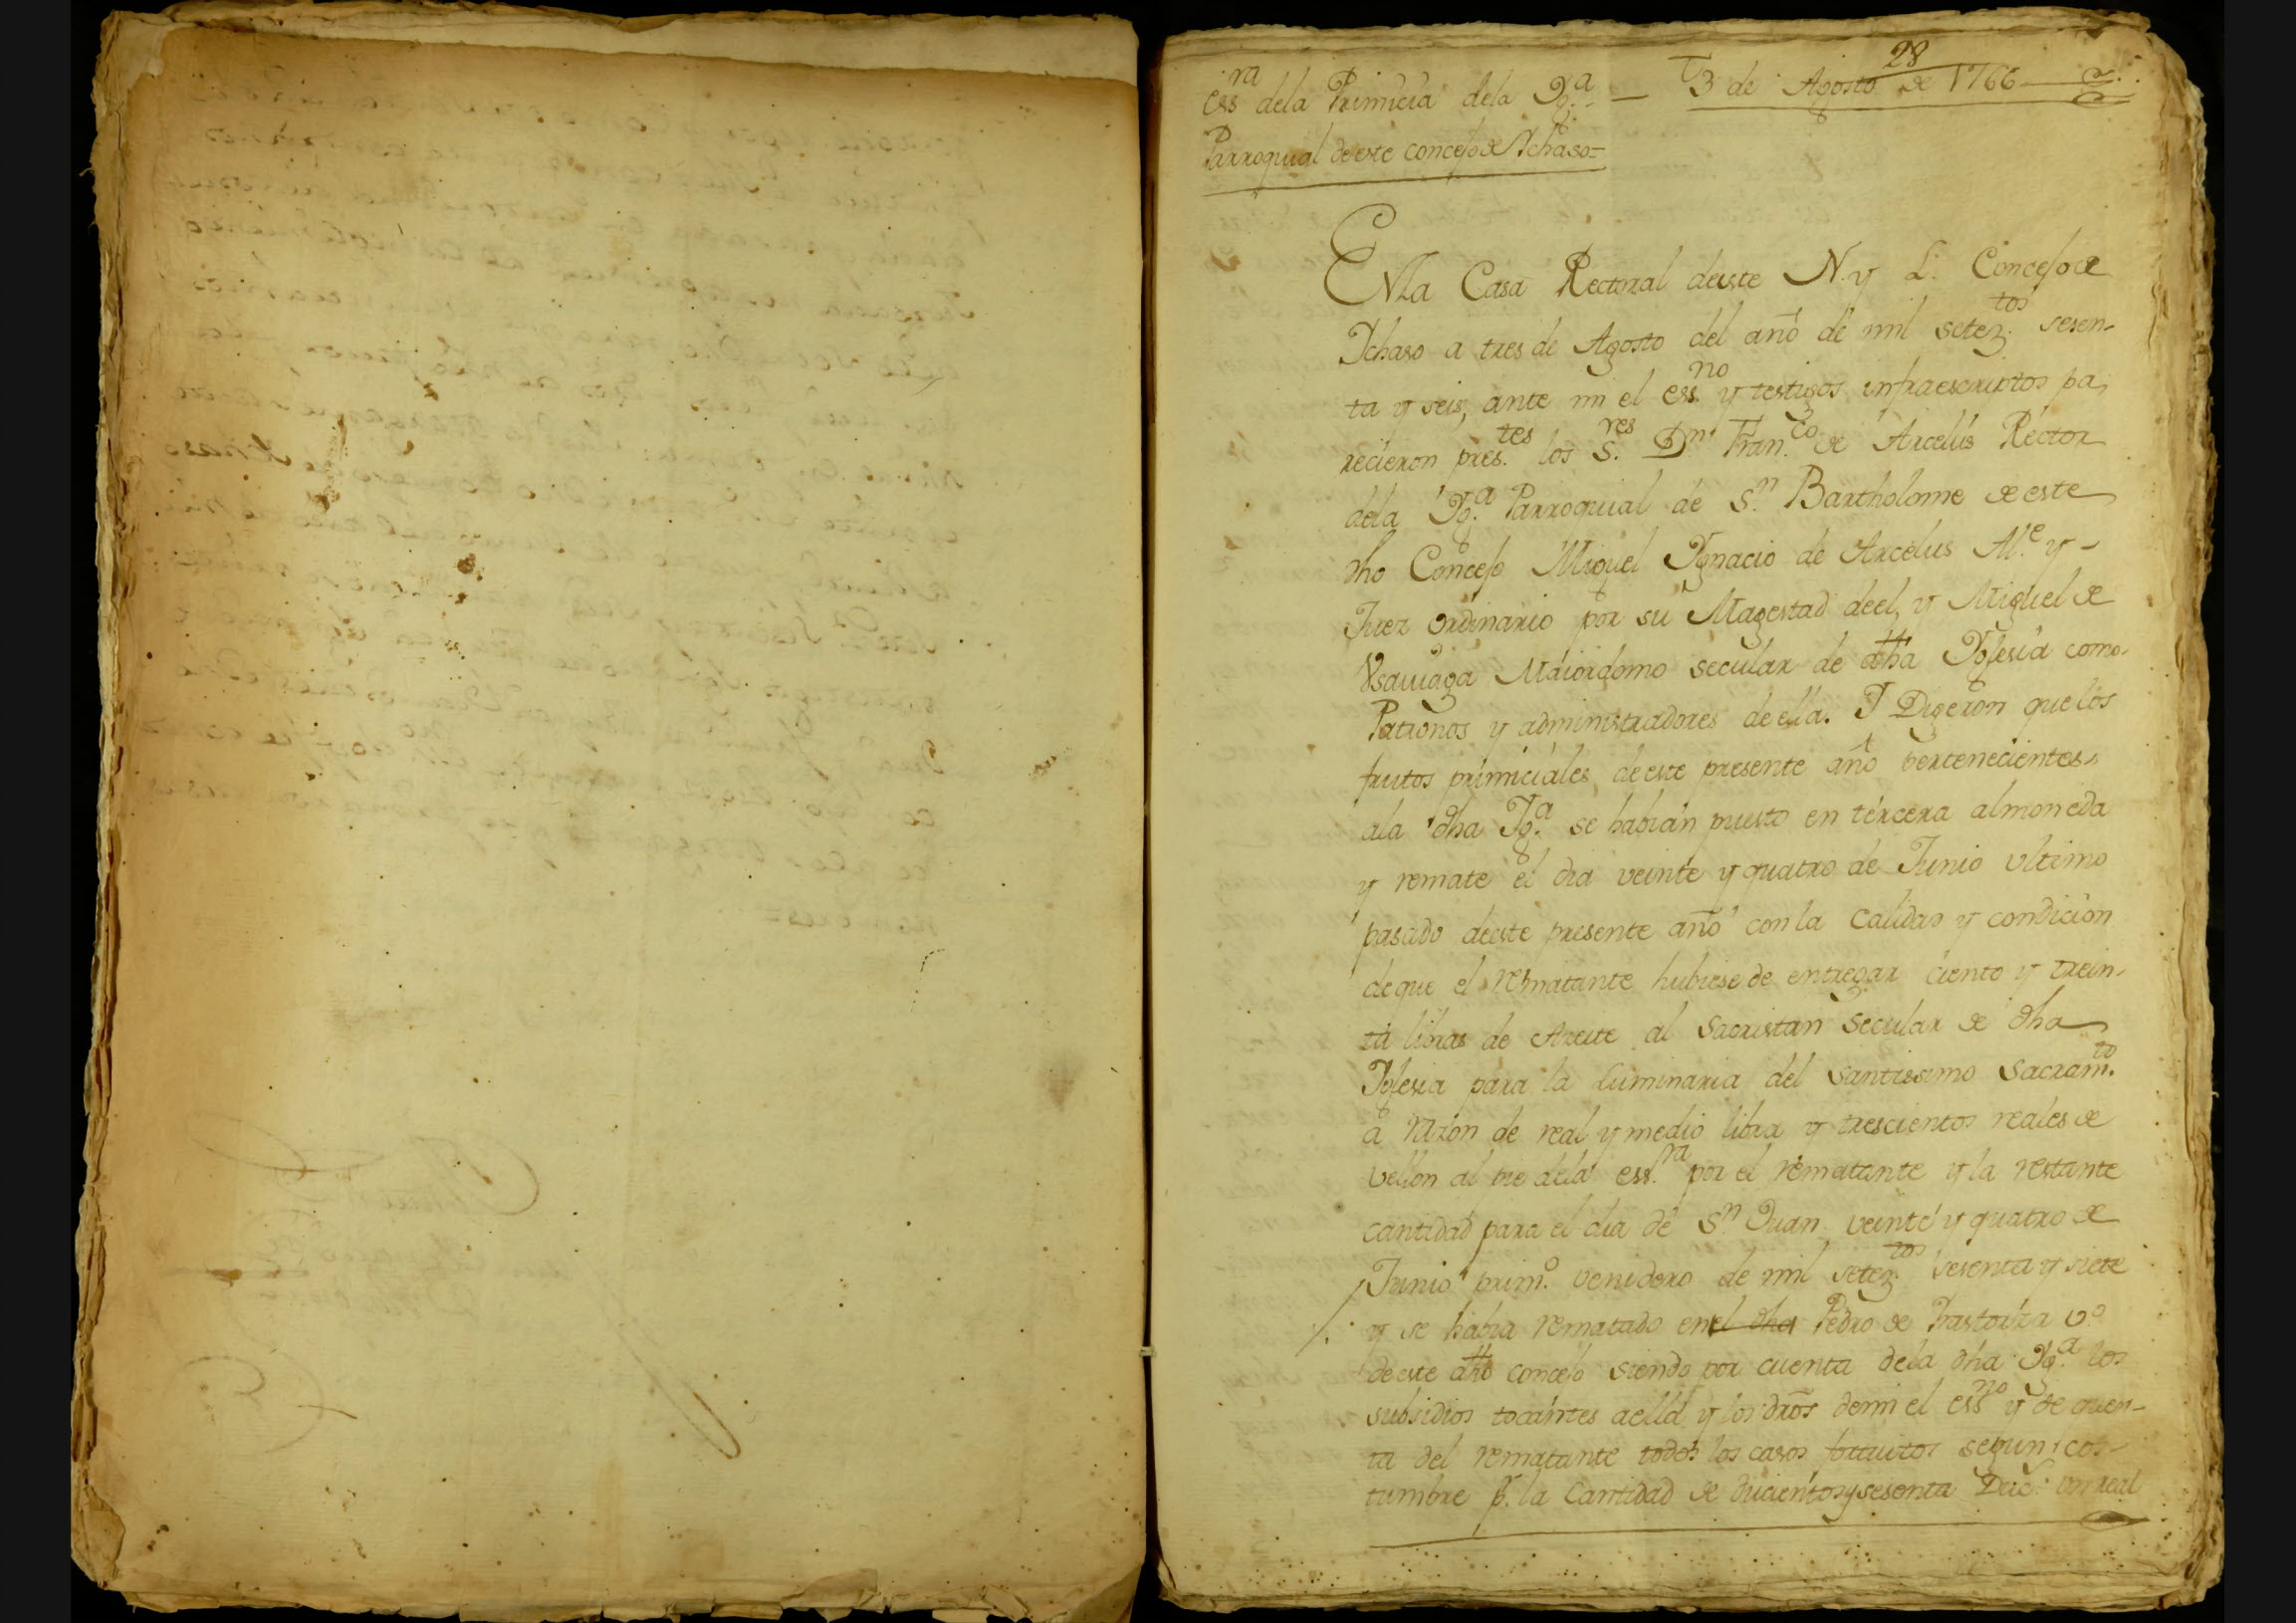 28
Essra dela Primicia dela Yg.a — 3 de Agosto de 1766
Parroquial de este concejo de Ychaso=
EN la Casa Rectoral deeste N. y L. Concejo de
Ychaso a tres de Agosto del año de mil setez.tos sesen-
ta y seis, ante mi el ess.no y testigos infraescriptos pa,
recieron pres.tes los S.res Dn Fran.co de Arcelus Rector
dela Yg.a Parroquial de S.n Bartholome de este
dho Concejo Miguel Ygnacio de Arcelus Al.e y -
Juez ordinario por su Magestad deel, y Miguel de
Vsauiaga Maiordomo secular de dha Yglesia como
Patronos y administradores de ella. Y Digeron que los
frutos primiciales de este presente año pertenecientes
ala dha Yg.a se habian puesto en tercera almoneda
y remate el dia veinte y quatro de Junio vltimo
pasado deeste presente año con la calidad y condicion
de que el rematante hubiese de entregar ciento y trein-
ta libras de Azeite al sacristan secular de dha
Yglesia para la Luminaria del santissimo sacram.to
a razon de real y medio libra y trescientos reales de
vellon al pie dela ess.ra por el rematante y la restante
cantidad para el dia de S.n Juan veinte y quatro de
Junio prim.o venidero de mil setez.tos sesenta y siete
y se habia rematado en el dho Pedro de Yrastorza v.o
de este dho concejo siendo por cuenta dela dha Yg.a los
subsidios tocantes aella y los dros demi el ess.no y de quen-
ta del rematante todos los casos fortuitos segun cos-
tumbre p. la Cantidad de ducientos y sesenta Duc.s vn real